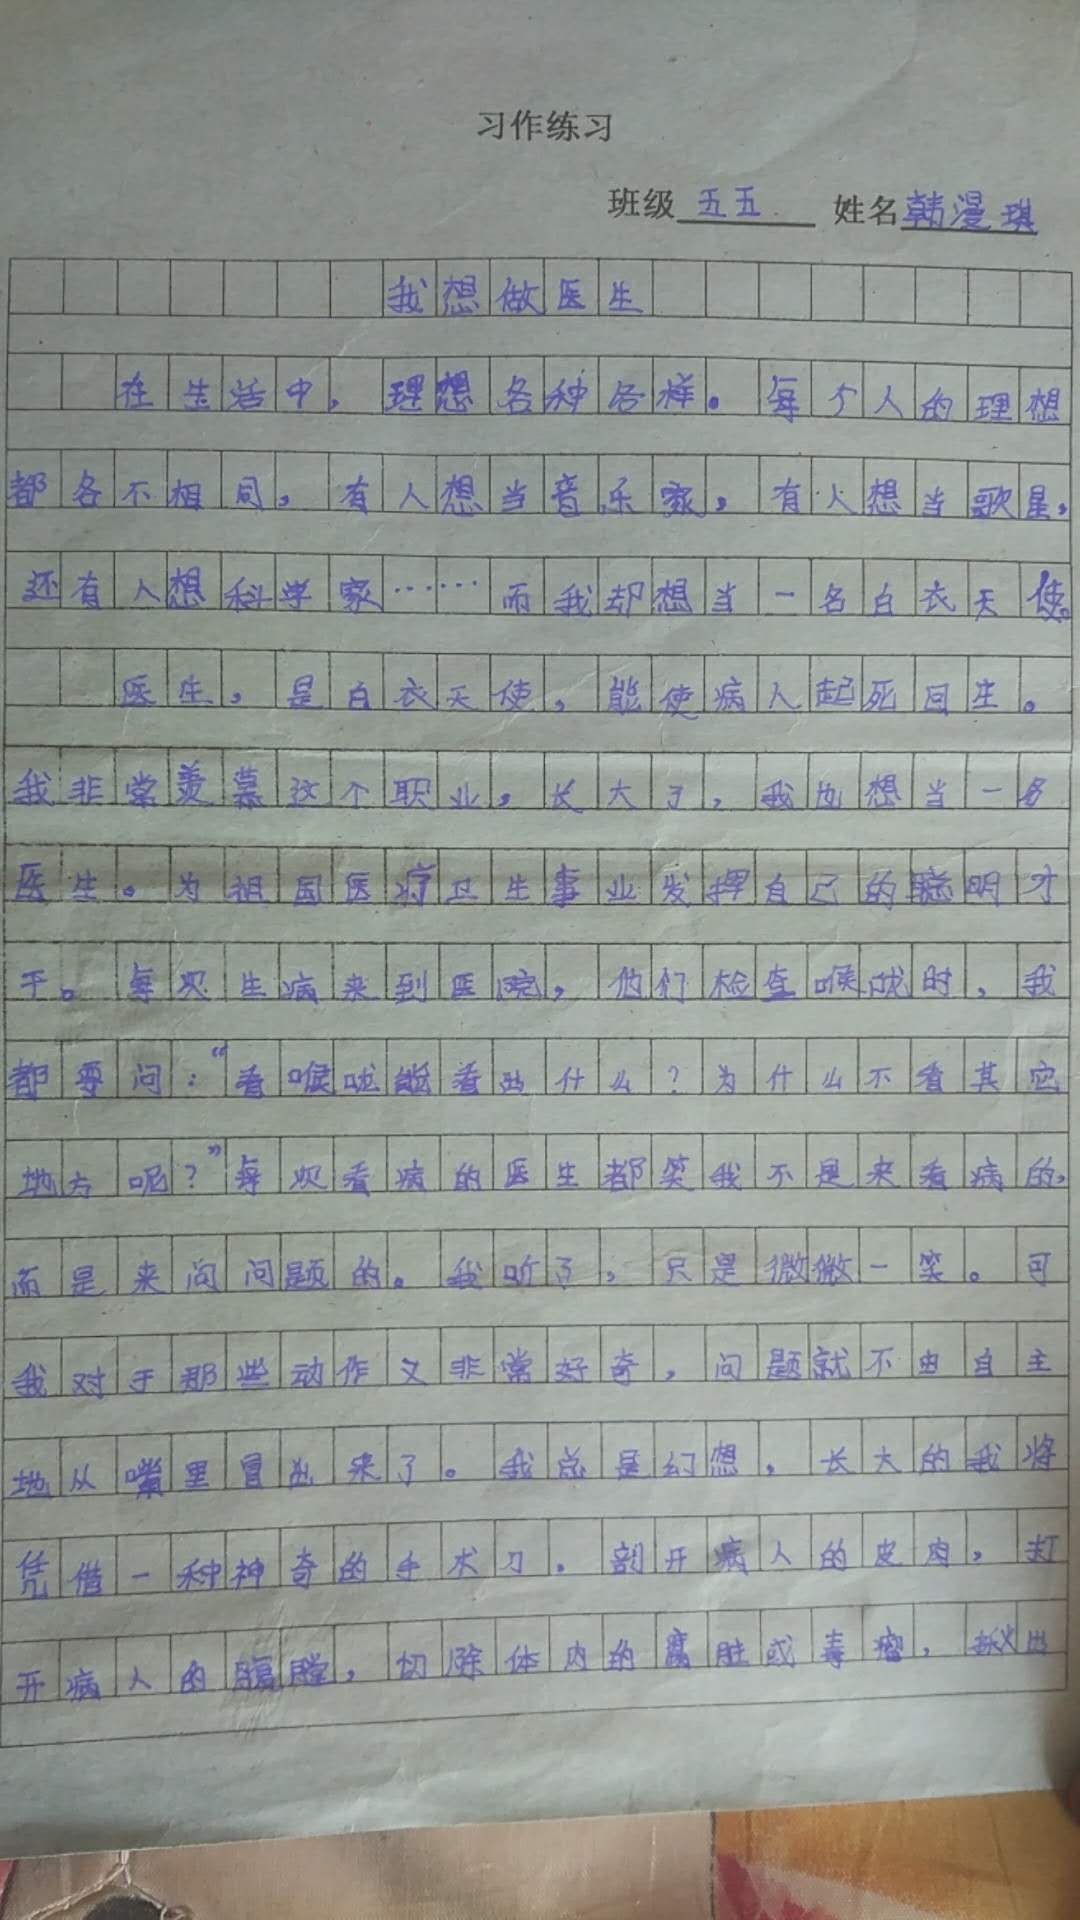 习作练习
班级 五五 姓名 韩漫琪
我想做医生
在生活中，理想各种各样。每个人的理想
都各不相同，有人想当音乐家，有人想当歌星，
还有人想科学家……而我却想当一名白衣天使。
医生，是白衣天使，能使病人起死回生。
我非常羡慕这个职业，长大了，我也想当一名
医生。为祖国医疗卫生事业发挥自己的聪明才
干。每次生病来到医院，他们检查喉咙时，我
都要问：“看喉咙能看出什么？为什么不看其它
地方呢？”每次看病的医生都笑我不是来看病的，
而是来问问题的。我听了，只是微微一笑。可
我对于那些动作又非常好奇，问题就不由自主
地从嘴里冒出来了。我总是幻想，长大的我将
凭借一种神奇的手术刀，剖开病人的皮肉，打
开病人的腹膛，切除体内的腐脏或毒瘤，掀出